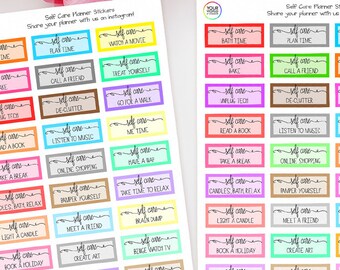 Self Care Planner Stickers
Share your planner with us on instagram!
self care
PLAN TIME
self care
WATCH A MOVIE
self care
CALL A FRIEND
self care
TREAT YOURSELF
self care
DE-CLUTTER
self care
GO FOR A WALK
READ A BOOK
self care
LISTEN TO MUSIC
self care
ME TIME
TAKE A BREAK
self care
ONLINE SHOPPING
self care
HAVE A NAP
CANDLES, BATH, RELAX
self care
PAMPER YOURSELF
self care
TAKE TIME TO RELAX
LIGHT A CANDLE
self care
MEET A FRIEND
self care
BRAIN DUMP
BOOK A HOLIDAY
self care
CREATE ART
self care
BINGE WATCH TV
Self Care Planner Stickers
Share your planner with us on
self care
BATH TIME
self care
PLAN TIME
self care
BAKE
self care
CALL A FRIEND
self care
UNPLUG TECH
self care
DE-CLUTTER
self care
READ A BOOK
self care
LISTEN TO MUSIC
self care
TAKE A BREAK
self care
ONLINE SHOPPING
self care
CANDLES, BATH, RELAX
self care
PAMPER YOURSELF
self care
LIGHT A CANDLE
self care
MEET A FRIEND
self care
BOOK A HOLIDAY
self care
CREATE ART